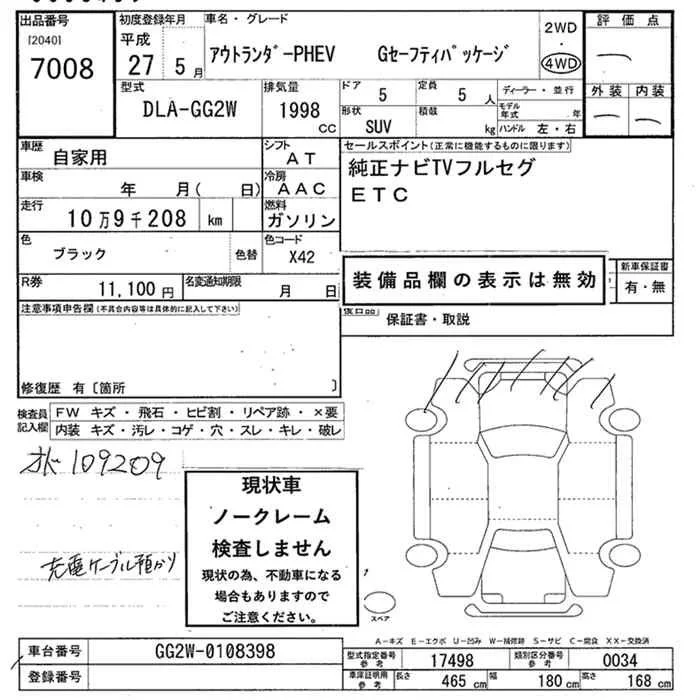 出品番号
[2040]
7008
初度登録年月
平成
27 5 月
車名・グレード
アウトランダーPHEV Gセーフティパッケージ
2WD
・
4WD
評価点
—
外装 内装
— —
型式
DLA-GG2W
排気量
1998 CC
ドア
5
定員
5 人
形状
SUV
積載
kg
ディーラー・並行
モデル年式 年
ハンドル 左・右
車歴
自家用
シフト
AT
車検
年 月( 日)
冷房
AAC
走行
10万9千208 km
燃料
ガソリン
色
ブラック
色替
色コード
X42
R券
11,100 円
名変通知期限
月 日
セールスポイント(正常に機能するものに限ります)
純正ナビTVフルセグ
ETC
装備品欄の表示は無効
新車保証書
有・無
保証書・取説
注意事項申告欄(不具合内容等は具体的に記入して下さい)
修復歴 有〔箇所 〕
検査員記入欄
FW キズ・飛石・ヒビ割・リペア跡・×要
内装 キズ・汚レ・コゲ・穴・スレ・キレ・破レ
109209
充電ケーブル預かり
現状車
ノークレーム
検査しません
現状の為、不動車になる
場合もありますので
ご注意ください。
スペア
A-キズ E-エクボ U-凹み W-補修跡 S-サビ C-腐食 XX-交換済
車台番号
GG2W-0108398
登録番号
型式指定番号
参考
17498
類別区分番号
参考
0034
車庫証明用
参考
長さ
465 cm
幅
180 cm
高さ
168 cm